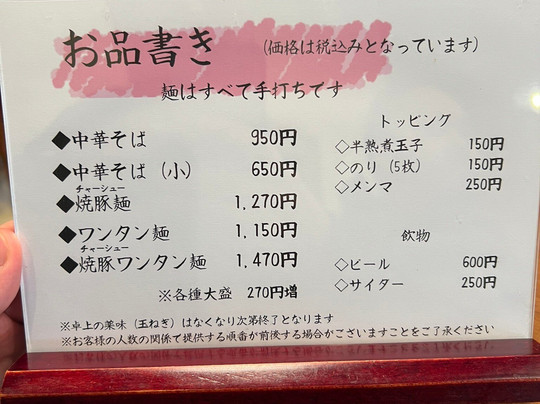 お品書き （価格は税込みとなっています）
麺はすべて手打ちです
◆中華そば 950円
◆中華そば（小） 650円
チャーシュー
◆焼豚麺 1,270円
◆ワンタン麺 1,150円
チャーシュー
◆焼豚ワンタン麺 1,470円
※各種大盛 270円増
トッピング
◇半熟煮玉子 150円
◇のり（5枚） 150円
◇メンマ 250円
飲物
◇ビール 600円
◇サイター 250円
※卓上の薬味（玉ねぎ）はなくなり次第終了となります
※お客様の人数の関係で提供する順番が前後する場合がございますことをご了承ください